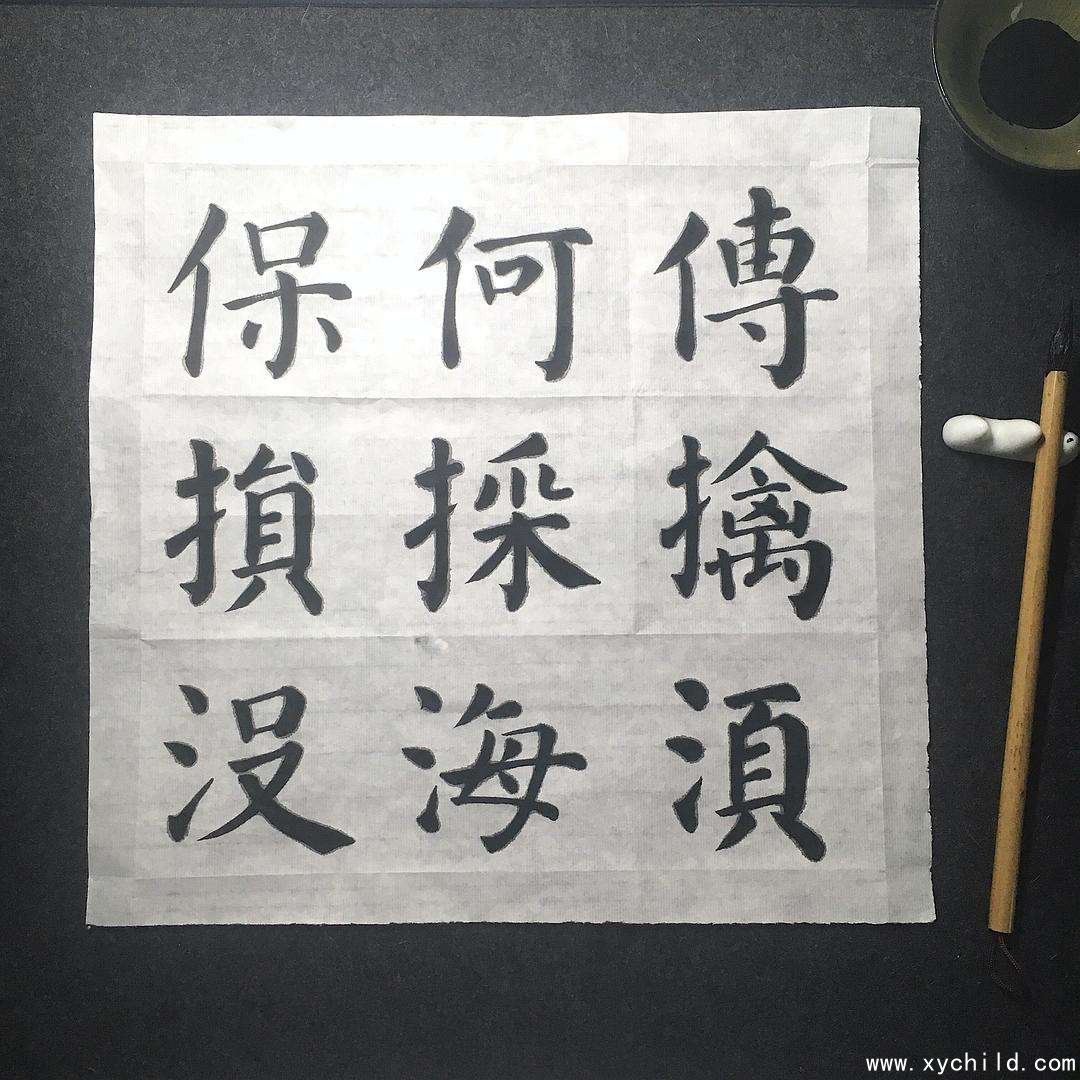 保何傳
損採擒
没海湏
www.xychild.com